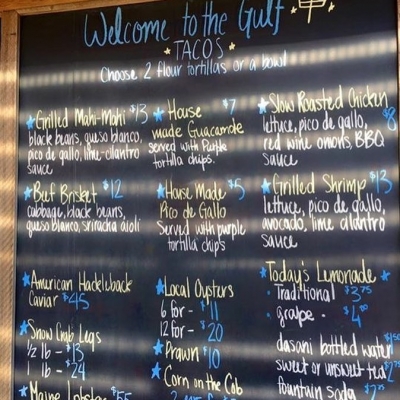 Welcome to the Gulf
TACOS
Choose 2 flour tortillas or a bowl
Grilled Mahi-Mahi $13
black beans, queso blanco,
pico de gallo, lime-cilantro
sauce
Beef Brisket $12
cabbage, black beans,
queso blanco, sriracha aioli
American Hackleback
Caviar $45
Snow Crab Legs
1/2 lb - $13
1 lb - $24
Maine Lobster $55
House $7
made Guacamole
served with Purple
tortilla chips.
House Made $5
Pico de Gallo
Served with purple
tortilla chips
Local Oysters
6 for - $11
12 for - $20
Prawn $10
Corn on the Cob
Slow Roasted Chicken
lettuce, pico de gallo, $8
red wine onions, BBQ
sauce
Grilled Shrimp $13
lettuce, pico de gallo,
avocado, lime cilantro
sauce
Today's Lemonade
Traditional $3.75
grape - $4.00
dasani bottled water
sweet or unsweet tea $2.75
fountain soda